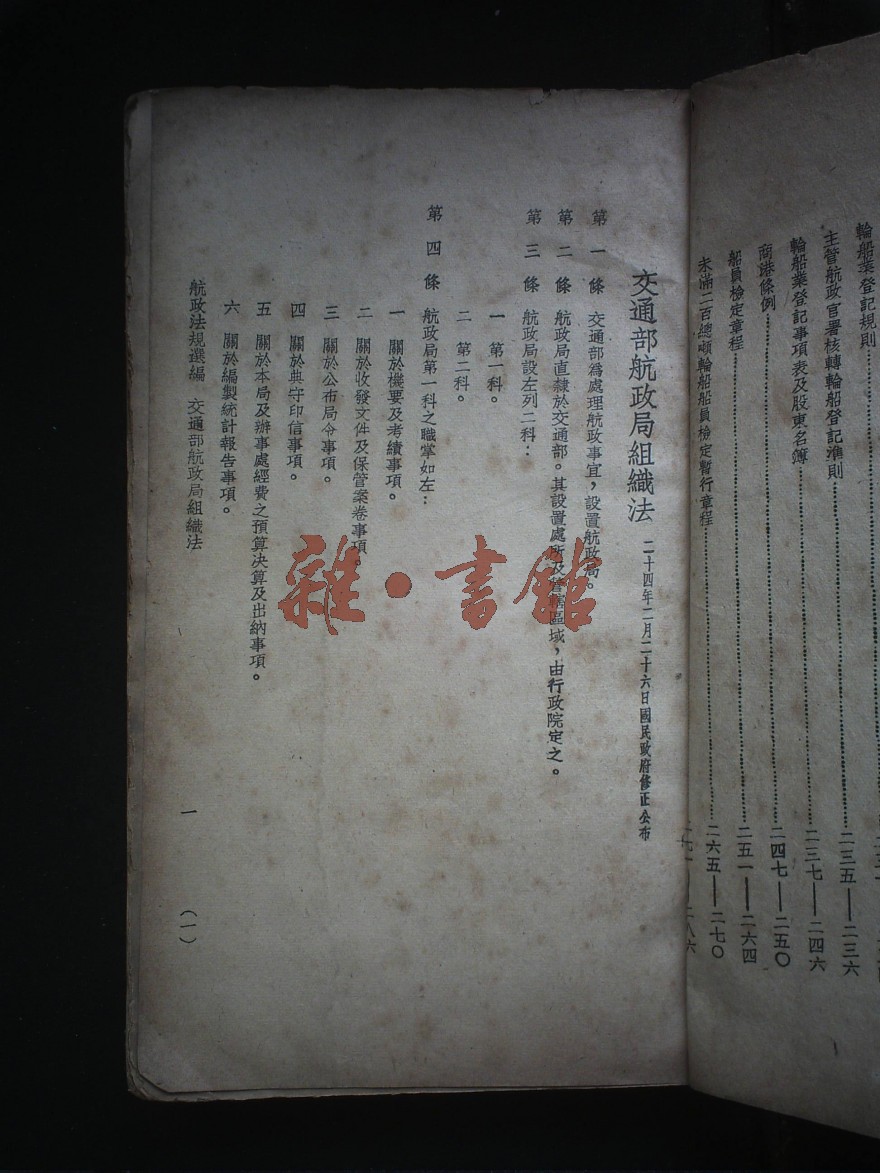 輪船業登記規則
主管航政官署核轉輪船登記準則……二三五——二三六
輪船業登記事項表及股東名簿……二三七——二四六
商港條例……二四七——二五〇
船員檢定章程……二五一——二六四
未滿二百總噸輪船船員檢定暫行章程……二六五——二七〇
二八六
交通部航政局組織法 二十四年二月二十六日國民政府修正公布
第一條 交通部爲處理航政事宜,設置航政局。
第二條 航政局直隸於交通部。其設置處所及管轄區域,由行政院定之。
第三條 航政局設左列二科:
一 第一科。
二 第二科。
第四條 航政局第一科之職掌如左:
一 關於機要及考績事項。
二 關於收發文件及保管案卷事項。
三 關於公布局令事項。
四 關於典守印信事項。
五 關於本局及辦事處經費之預算決算及出納事項。
六 關於編製統計報告事項。
航政法規選編 交通部航政局組織法 一 (一)
雜·書館